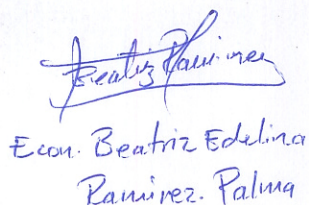 Beatriz Ramirez
Econ. Beatriz Edelina
Ramirez. Palma